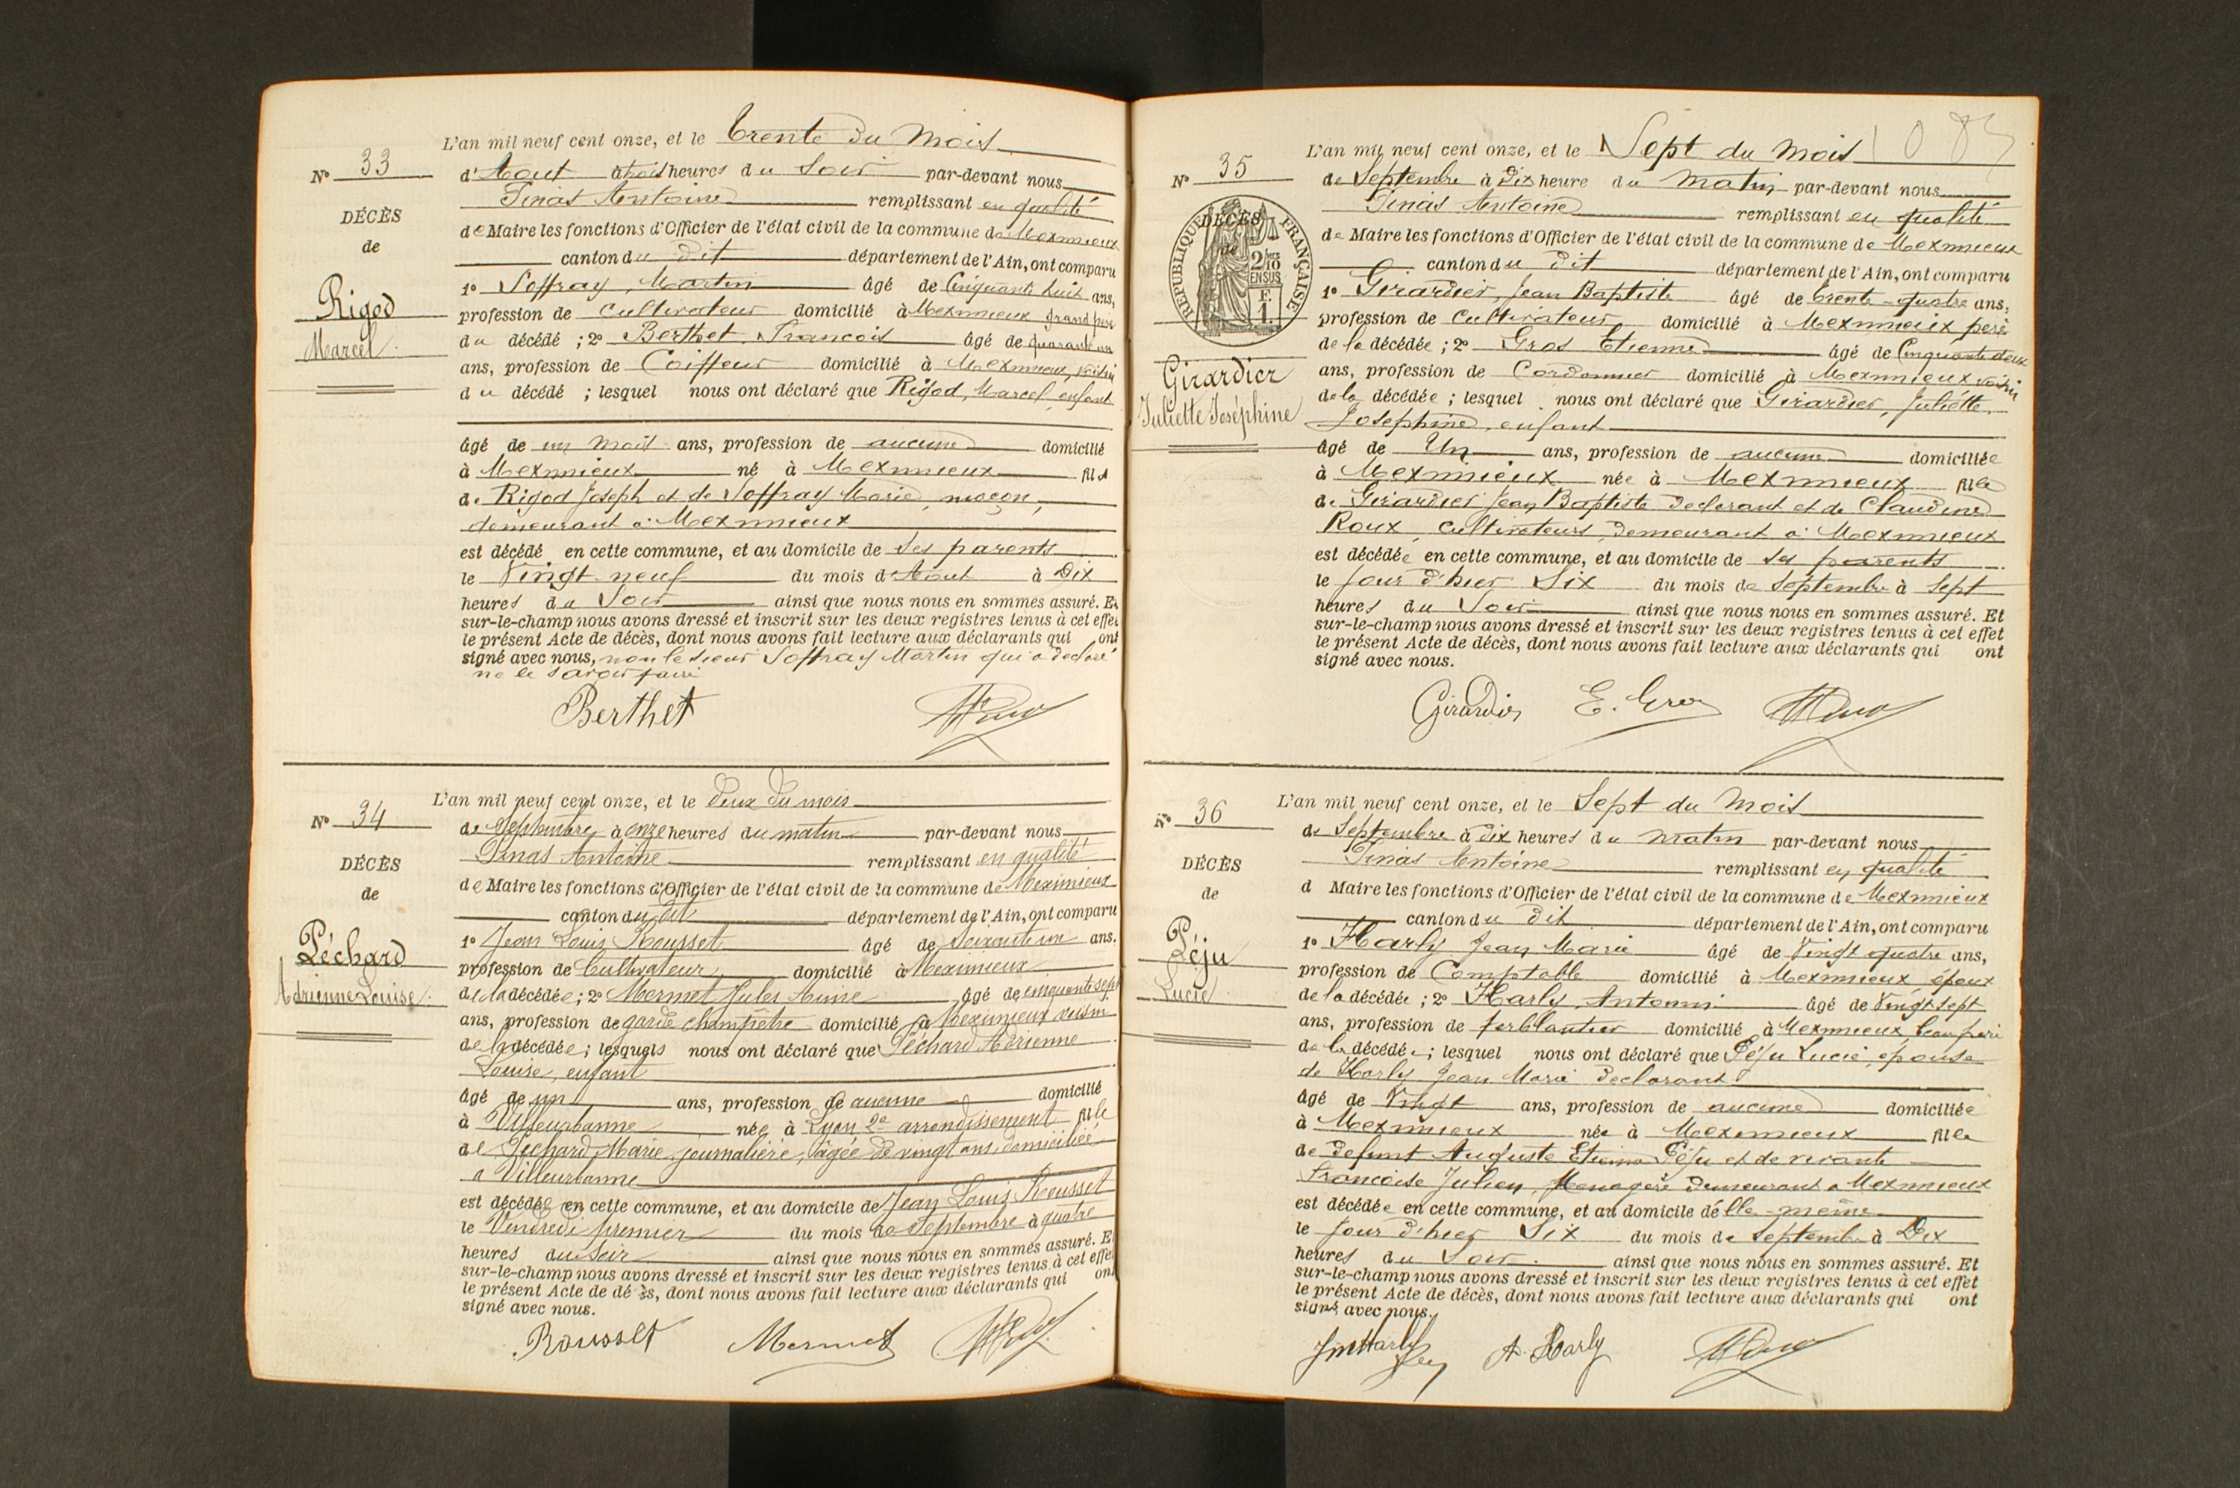 L'an mil neuf cent onze, et le trente du mois
N° 33
d'Aout à trois heures du soir par-devant nous
Tinas Antoine remplissant en qualité
DÉCÈS
de Maire les fonctions d'Officier de l'état civil de la commune de Meximieux
de
canton du dit département de l'Ain, ont comparu
Rigod
Marcel
1° Soffray, Martin âgé de cinquante huit ans,
profession de cultivateur domicilié à Meximieux grand père
du décédé ; 2° Berthet, Francois âgé de quarante un
ans, profession de Coiffeur domicilié à Meximieux, voisin
du décédé ; lesquel nous ont déclaré que Rigod, Marcel enfant
âgé de un mois ans, profession de aucune domicilié
à Meximieux né à Meximieux fils
de Rigod Joseph et de Soffray Marie, maçon,
demeurant à Meximieux
est décédé en cette commune, et au domicile de ses parents
le Vingt-neuf du mois d'Aout à Dix
heures du Soir ainsi que nous nous en sommes assuré. Et
sur-le-champ nous avons dressé et inscrit sur les deux registres tenus à cet effet
le présent Acte de décès, dont nous avons fait lecture aux déclarants qui ont
signé avec nous, non le sieur Soffray Martin qui a declaré
ne le savoir faire
Berthet
L'an mil neuf cent onze, et le deux du mois
N° 34
de Septembre à onze heures du matin par-devant nous
Tinas Antoine remplissant en qualité
DÉCÈS
de Maire les fonctions d'Officier de l'état civil de la commune de Meximieux
de
canton du dit département de l'Ain, ont comparu
Péchard
Adrienne Louise
1° Jean Louis Rousset âgé de soixante un ans.
profession de Cultivateur domicilié à Meximieux
de la décédée ; 2° Mermet Jules Aimé âgé de cinquante sept
ans, profession de garde champêtre domicilié à Meximieux voisin
de la décédée ; lesquels nous ont déclaré que Péchard Adrienne
Louise, enfant
âgé de un ans, profession de aucune domicilié
à Villeurbanne née à Lyon 2e arrondissement fille
de Péchard Marie, journalière, âgée de vingt ans domiciliée
a Villeurbanne
est décédée en cette commune, et au domicile de Jean Louis Rousset
le Vendredi premier du mois de septembre à quatre
heures du soir ainsi que nous nous en sommes assuré. Et
sur-le-champ nous avons dressé et inscrit sur les deux registres tenus à cet effet
le présent Acte de dé ès, dont nous avons fait lecture aux déclarants qui ont
signé avec nous.
Rousset Mermet
L'an mil neuf cent onze, et le Sept du mois
N° 35
de Septembre à dix heure du matin par-devant nous
Tinas Antoine remplissant en qualité
DÉCÈS
RÉPUBLIQUE FRANÇAISE
2/10 EN SUS
F. 1.
de Maire les fonctions d'Officier de l'état civil de la commune de Meximieux
canton du dit département de l'Ain, ont comparu
Girardier
Juliette Joséphine
1° Girardier, Jean Baptiste âgé de trente-quatre ans,
profession de cultivateur domicilié à Meximieux père
de la décédée ; 2° Gros Etienne âgé de Cinquante deux
ans, profession de Cordonnier domicilié à Meximieux voisin
de la décédée ; lesquel nous ont déclaré que Girardier, Juliette,
Josephine, enfant
âgé de Un ans, profession de aucune domiciliée
à Meximieux née à Meximieux fille
de Girardier Jean Baptiste declarant et de Claudine
Roux, cultivateurs, demeurant à Meximieux
est décédée en cette commune, et au domicile de ses parents
le jour d'hier Six du mois de Septembre à sept
heures du Soir ainsi que nous nous en sommes assuré. Et
sur-le-champ nous avons dressé et inscrit sur les deux registres tenus à cet effet
le présent Acte de décès, dont nous avons fait lecture aux déclarants qui ont
signé avec nous.
Girardier E. Gros
L'an mil neuf cent onze, et le Sept du mois
N° 36
de Septembre à dix heures du matin par-devant nous
Tinas Antoine remplissant en qualité
DÉCÈS
d Maire les fonctions d'Officier de l'état civil de la commune de Meximieux
de
canton du dit département de l'Ain, ont comparu
Péju
Lucie
1° Harly Jean Marie âgé de Vingt quatre ans,
profession de Comptable domicilié à Meximieux, époux
de la décédée ; 2° Harly, Antonin âgé de Vingt sept
ans, profession de ferblantier domicilié à Meximieux, beau frère
de la décédée ; lesquel nous ont déclaré que Péju Lucie, épouse
de Harly Jean Marie declarant
âgé de Vingt ans, profession de aucune domiciliée
à Meximieux née à Meximieux fille
de defunt Auguste Etienne Péju et de vivante
Francoise Julien, Menagère demeurant a Meximieux
est décédée en cette commune, et au domicile d'elle-même
le jour d'hier Six du mois de septembre à Dix
heures du Soir ainsi que nous nous en sommes assuré. Et
sur-le-champ nous avons dressé et inscrit sur les deux registres tenus à cet effet
le présent Acte de décès, dont nous avons fait lecture aux déclarants qui ont
signé avec nous.
JmHarly A. Harly